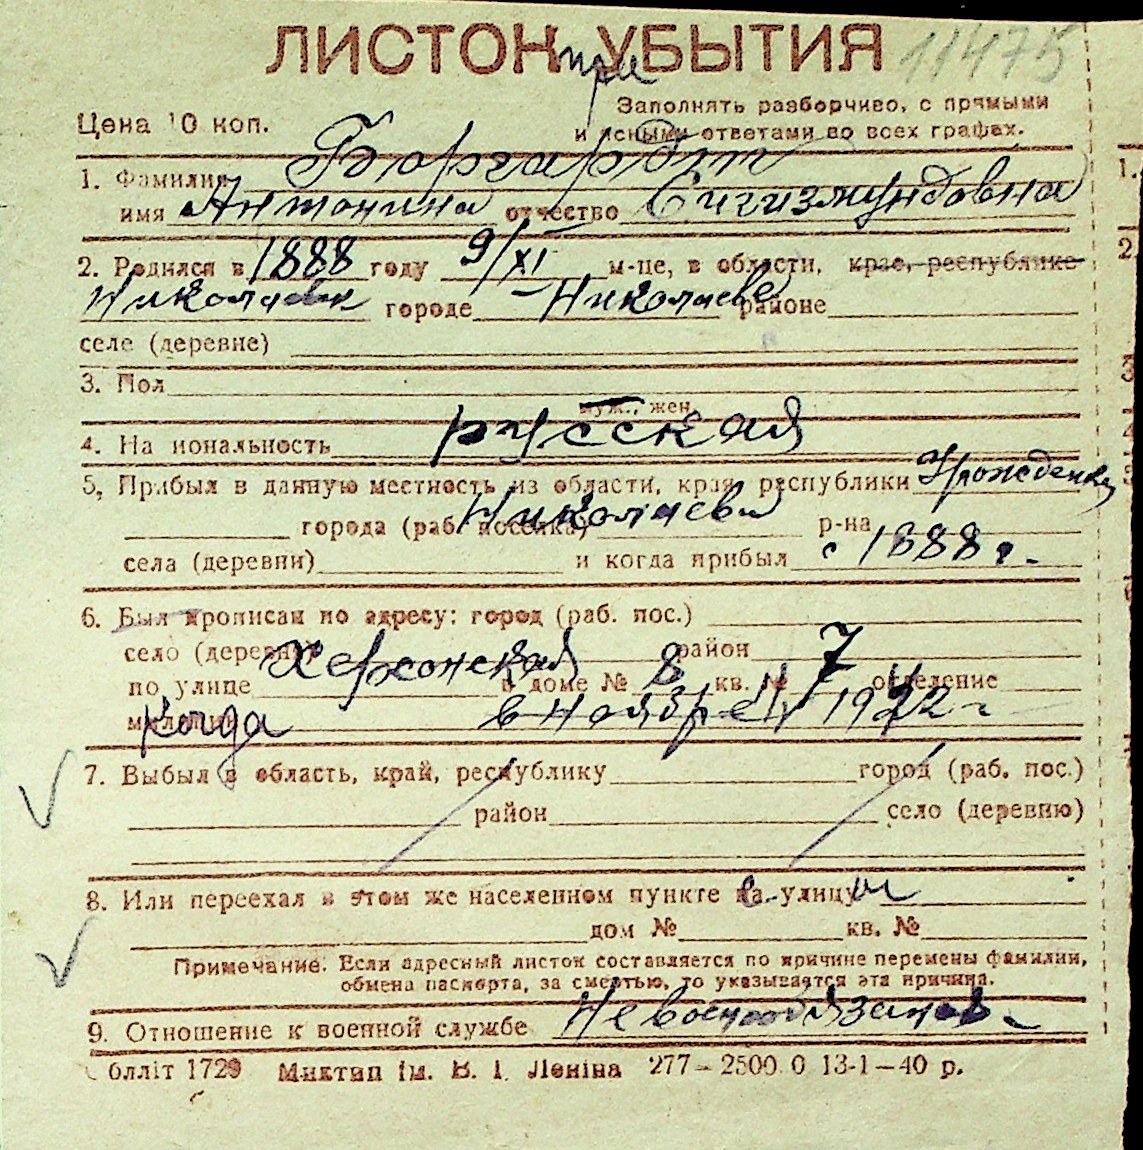 ЛИСТОК УБЫТИЯ 11475
при
Заполнять разборчиво, с прямыми
Цена 10 коп. и ясными ответами во всех графах.
1. Фамилия Боргардт
имя Антонина отчество Сигизмундовна
2. Родился в 1888 году 9/XI м-це, в области, крае, республике
Николаевск городе Николаеве районе
селе (деревне)
3. Пол
муж., жен.
4. На иональность русская
5. Прибыл в данную местность из области, края, республики Урожденка
города (раб. поселка) Николаева р-на
села (деревни) и когда прибыл с 1888 г.
6. Был прописан по адресу: город (раб. пос.)
село (деревне) район
по улице Херсонская в доме № 8 кв. № 7 отделение
милиции Когда в ноябре 1922 г
7. Выбыл в область, край, республику город (раб. пос.)
район село (деревню)
8. Или переехал в этом же населенном пункте на улицу
дом № кв. №
Примечание. Если адресный листок составляется по причине перемены фамилии,
обмена паспорта, за смертью, то указывается эта причина.
9. Отношение к военной службе Невоенообязаная
блліт 1729 Миктип ім. В. І. Леніна 277–2500.0 13-1–40 р.